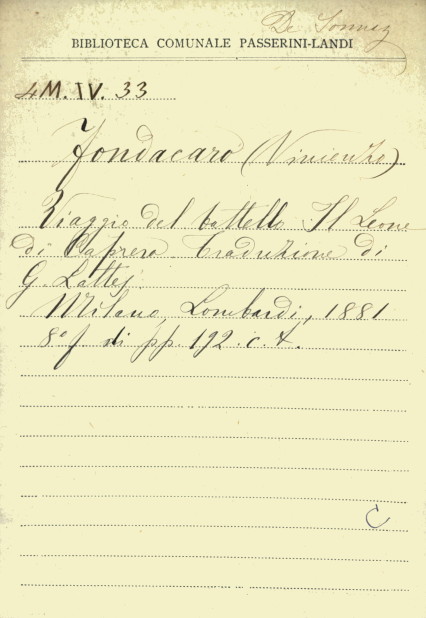 De Sonnaz
BIBLIOTECA COMUNALE PASSERINI-LANDI
4M.IV. 33
Fondacaro (Vincenzo)
Viaggio del battello Il Leone
di Caprera. Traduzione di
G. Lattes.
Milano, Lombardi, 1881
8º f di pp. 192. c. t.
C